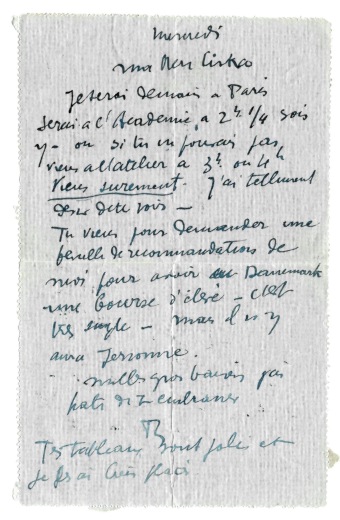 Mercredi
mon
Je serai demain a Paris
serai a l'Academie a 2h 1/4 sois
y - ou si tu ne pouvais pas
viens a l'atelier a 3h ou 4h
Viens surement. J'ai tellement
desir de te voir —
Tu viens pour demander une
feuille de recommandations de
moi pour avoir au Danemark
une bourse d'élève — c'est
très simple — mais il n y
aura personne.
milles gros baisers j'ai
hate de t'embrasser
Tes tableaux sont jolis et
je les ai